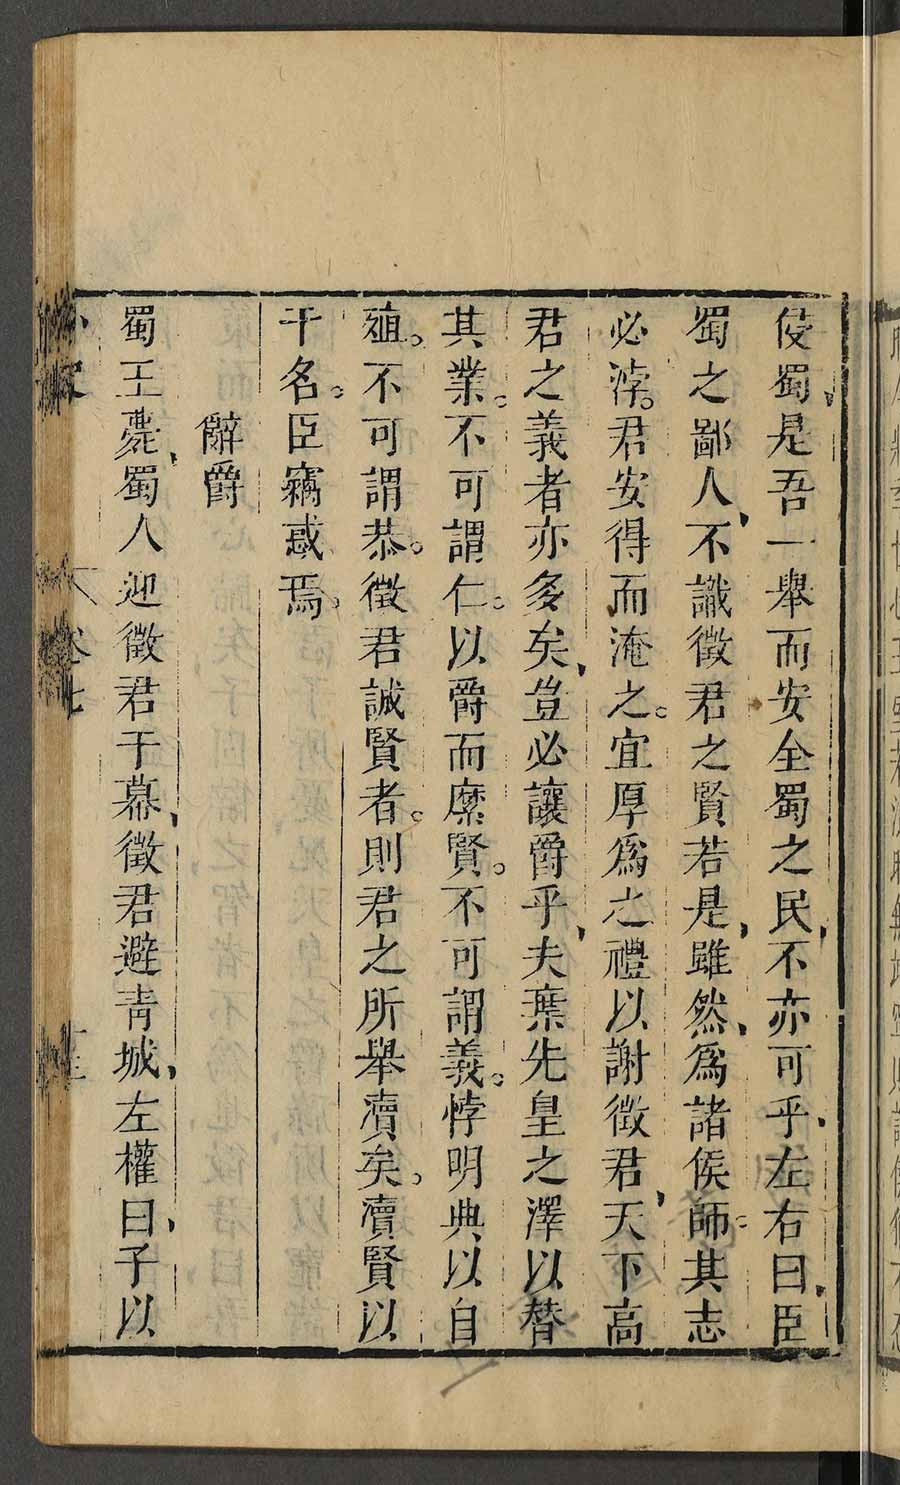 侵蜀、是吾一舉而安全蜀之民、不亦可乎、左右曰、臣
蜀之鄙人、不識徵君之賢若是、雖然、爲諸侯師。其志
必滓。君安得而淹之。宜厚爲之禮以謝徵君、天下高
君之義者亦多矣、豈必讓爵乎、夫棄先皇之澤以替
其業。不可謂仁。以爵而縻賢。不可謂義。悖明典以自
殖。不可謂恭。徵君誠賢者。則君之所舉瀆矣。瀆賢以
干名。臣竊惑焉。
辭爵
蜀王薨、蜀人迎徵君于幕、徵君避青城、左權曰、子以
卷七